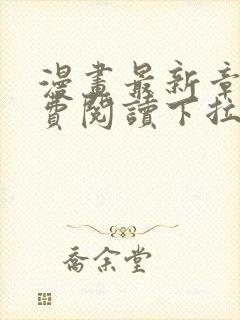 漫畫最新章
費閱讀下拉
喬余堂